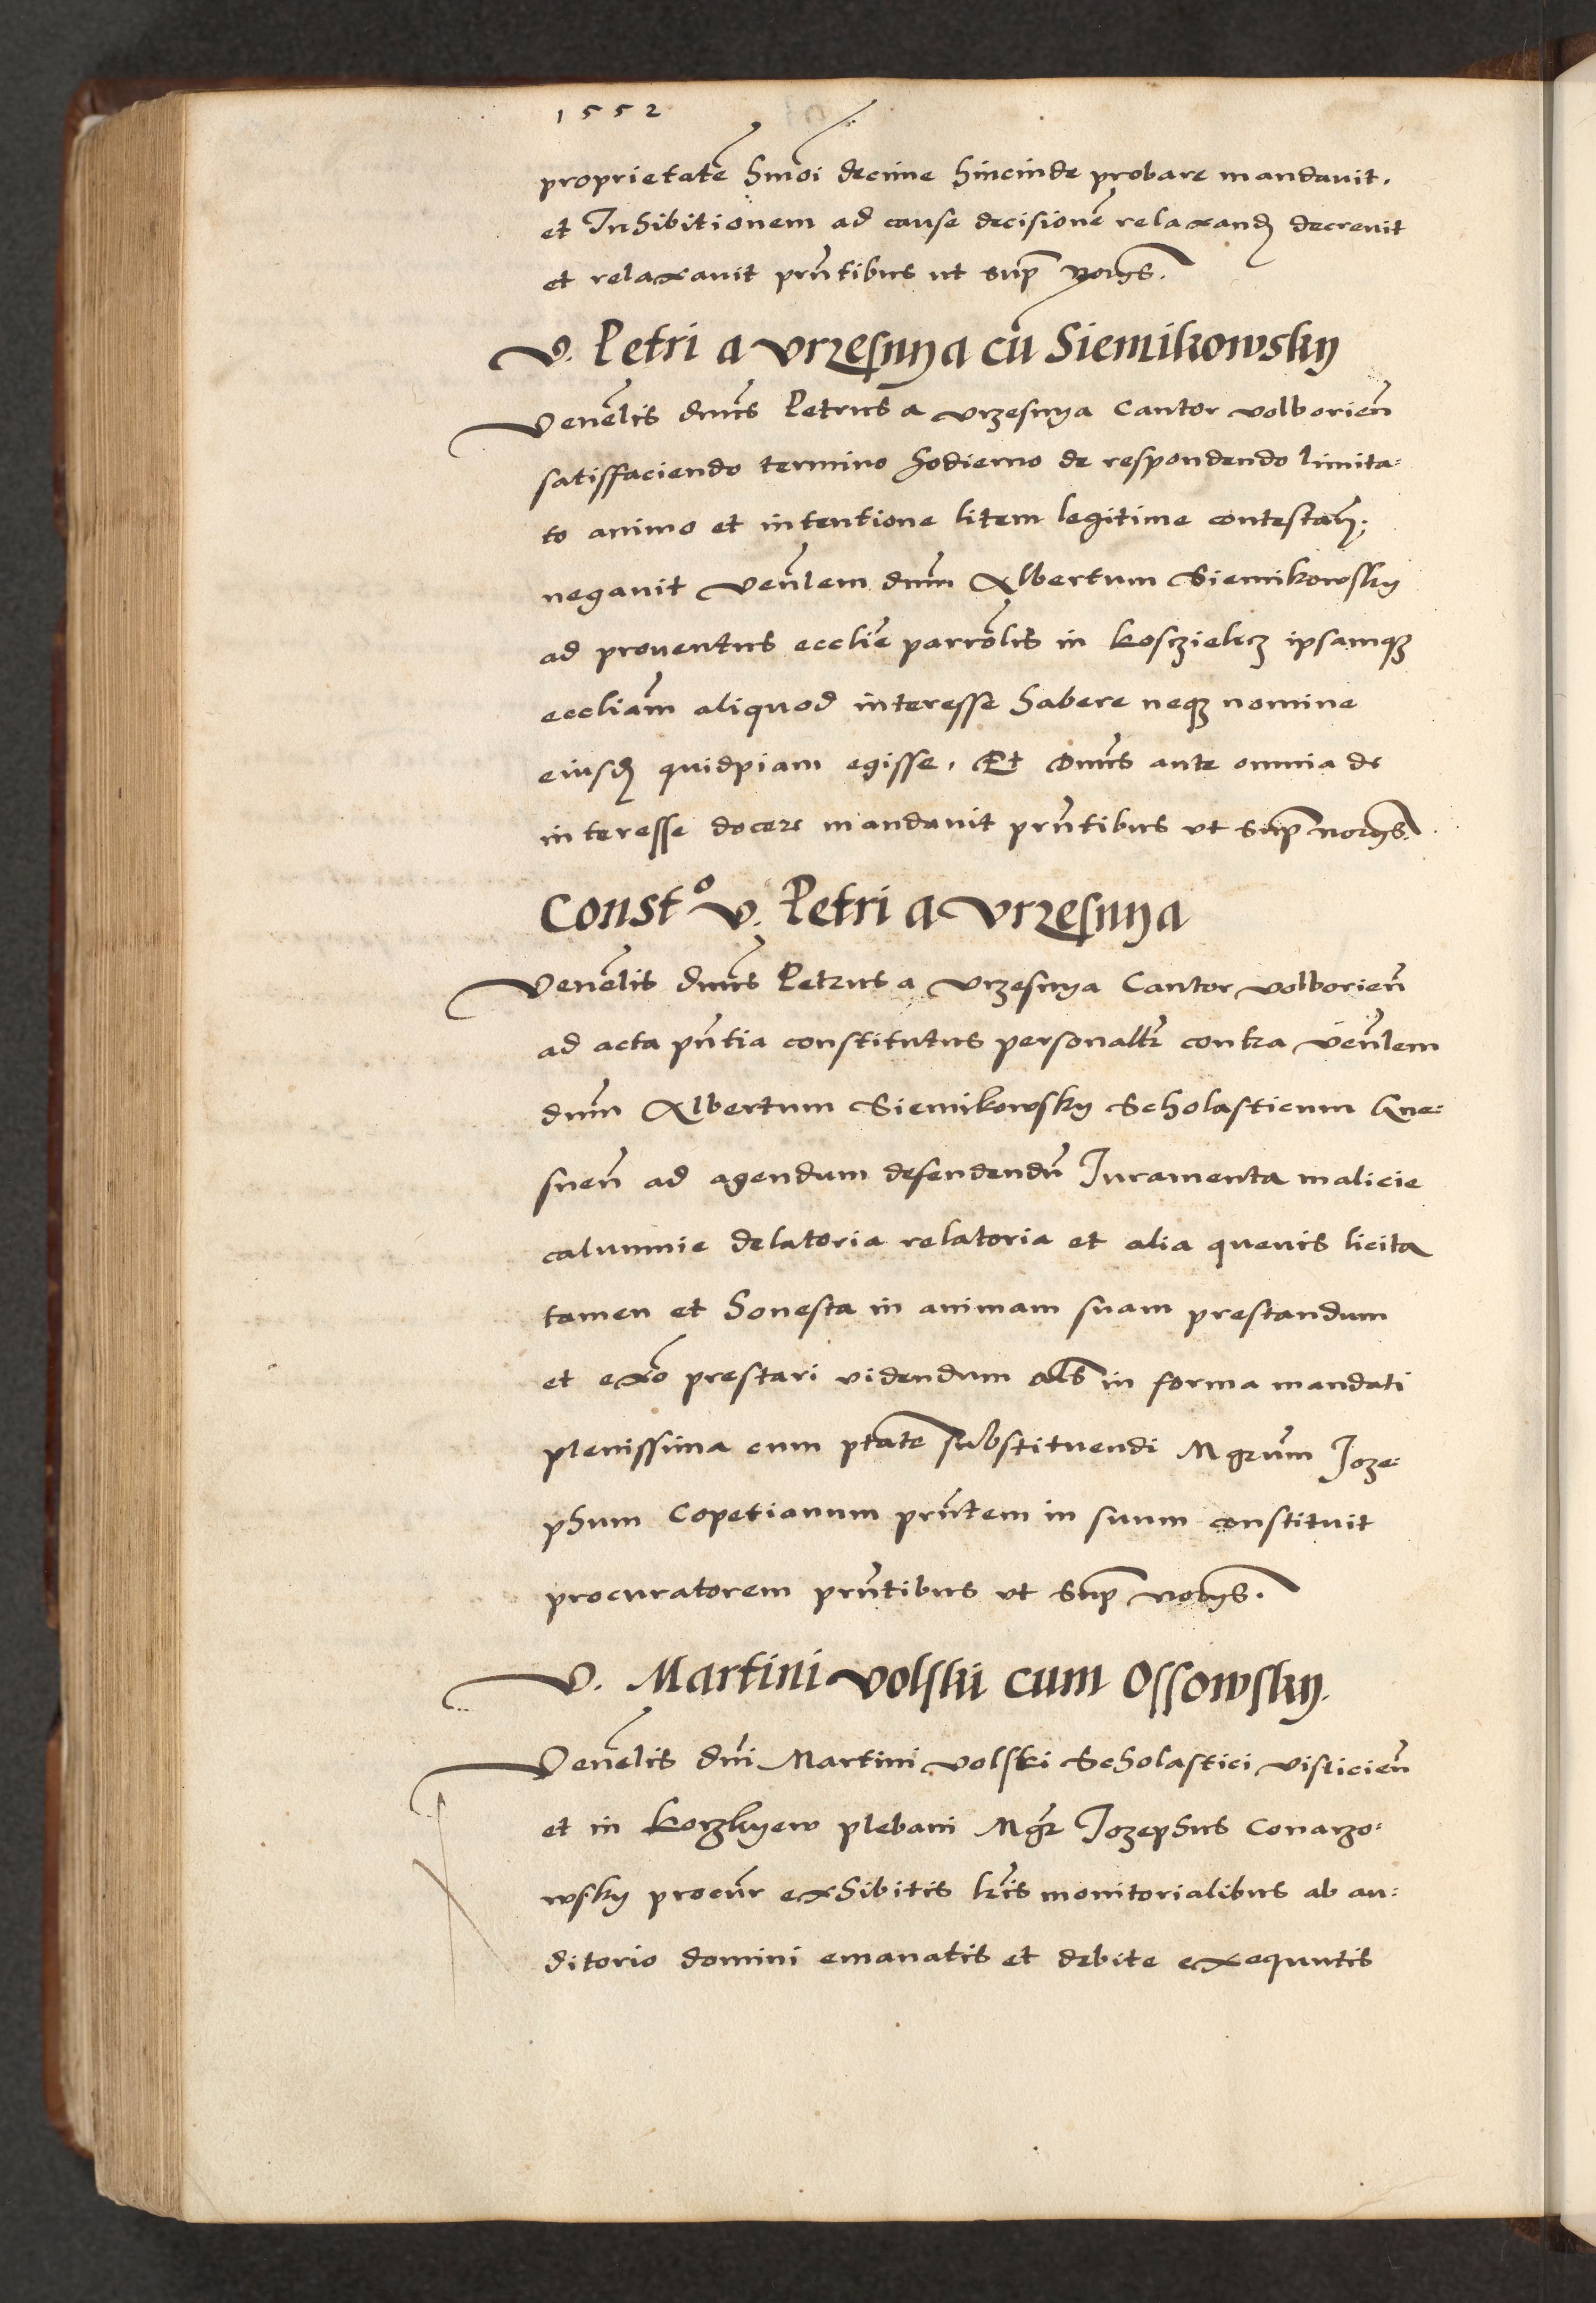 1552
proprietatē hmōi decime hincinde probare mandavit.
et Inhibitionem ad cause decisionē relaxand decrevit
et relaxavit pn̄tibus ut sup norgs.
V. Petri a Vrzesnya cū Siemikowsky
Venēlis dnūs Petrus a Vrzesnya Cantor volborien̄
satisfaciendo termino hodierno de respondendo limita:
to animo et intentione litem legitime contestan;
negavit ven̄lem dnm̄ Albertum Siemikowsky
ad proventus ecclīe parrōlis in Kosczielecz ipsamqz
eccliam̄ aliquod interesse habere neqz nomine
eiusd quidpiam egisse. Et Dnūs ante omnia de
interesse docere mandavit prn̄tibus vt sup norgs.
Constº V. Petri a Vrzesnya
Venēlis dnūs Petrus a Vrzesnya Cantor volborien̄
ad acta pn̄tia constitutus personaltr̄ contra ven̄lem
dnm̄ Albertum Siemikowsky Scholasticum Gne:
snen̄ ad agendum defendendū Iuramenta malicie
calumnie delatoria relatoria et alia quevis licita
tamen et honesta in animam suam prestandum
et exō prestari videndum als in forma mandati
plenissima cum ptate substituendi Mgrum̄ Joze:
phum Copetianum prn̄tem in suum constituit
procuratorem prn̄tibus vt sup norgs.
V. Martini Volski cum Ossowsky.
Venēlis dn̄i Martini Volski Scholastici Visliciēn
et in Korzkyew plebani Mgr̄ Jozephus Conarzo:
wsky procūr exhibitis lr̄is monitorialibus ab au:
ditorio domini emanatis et debite exequutis